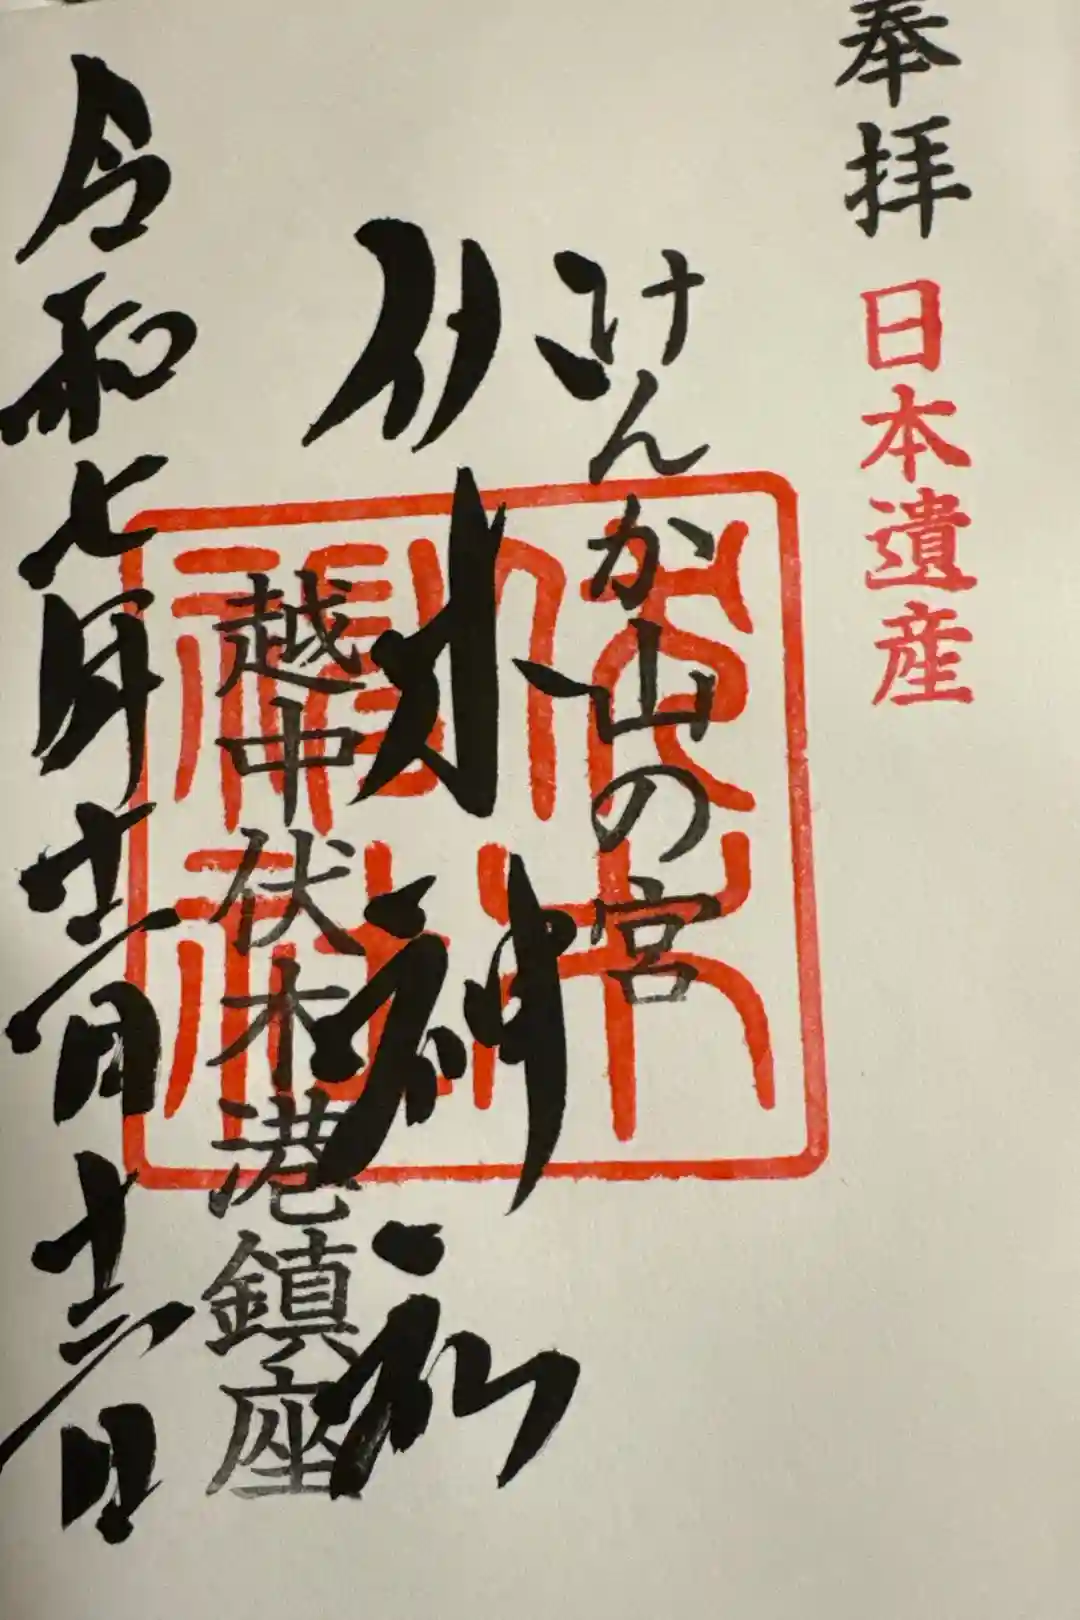 奉拝 日本遺産
けんか山の宮
伏木神社
越中伏木港鎮座
令和七年十二月十二日